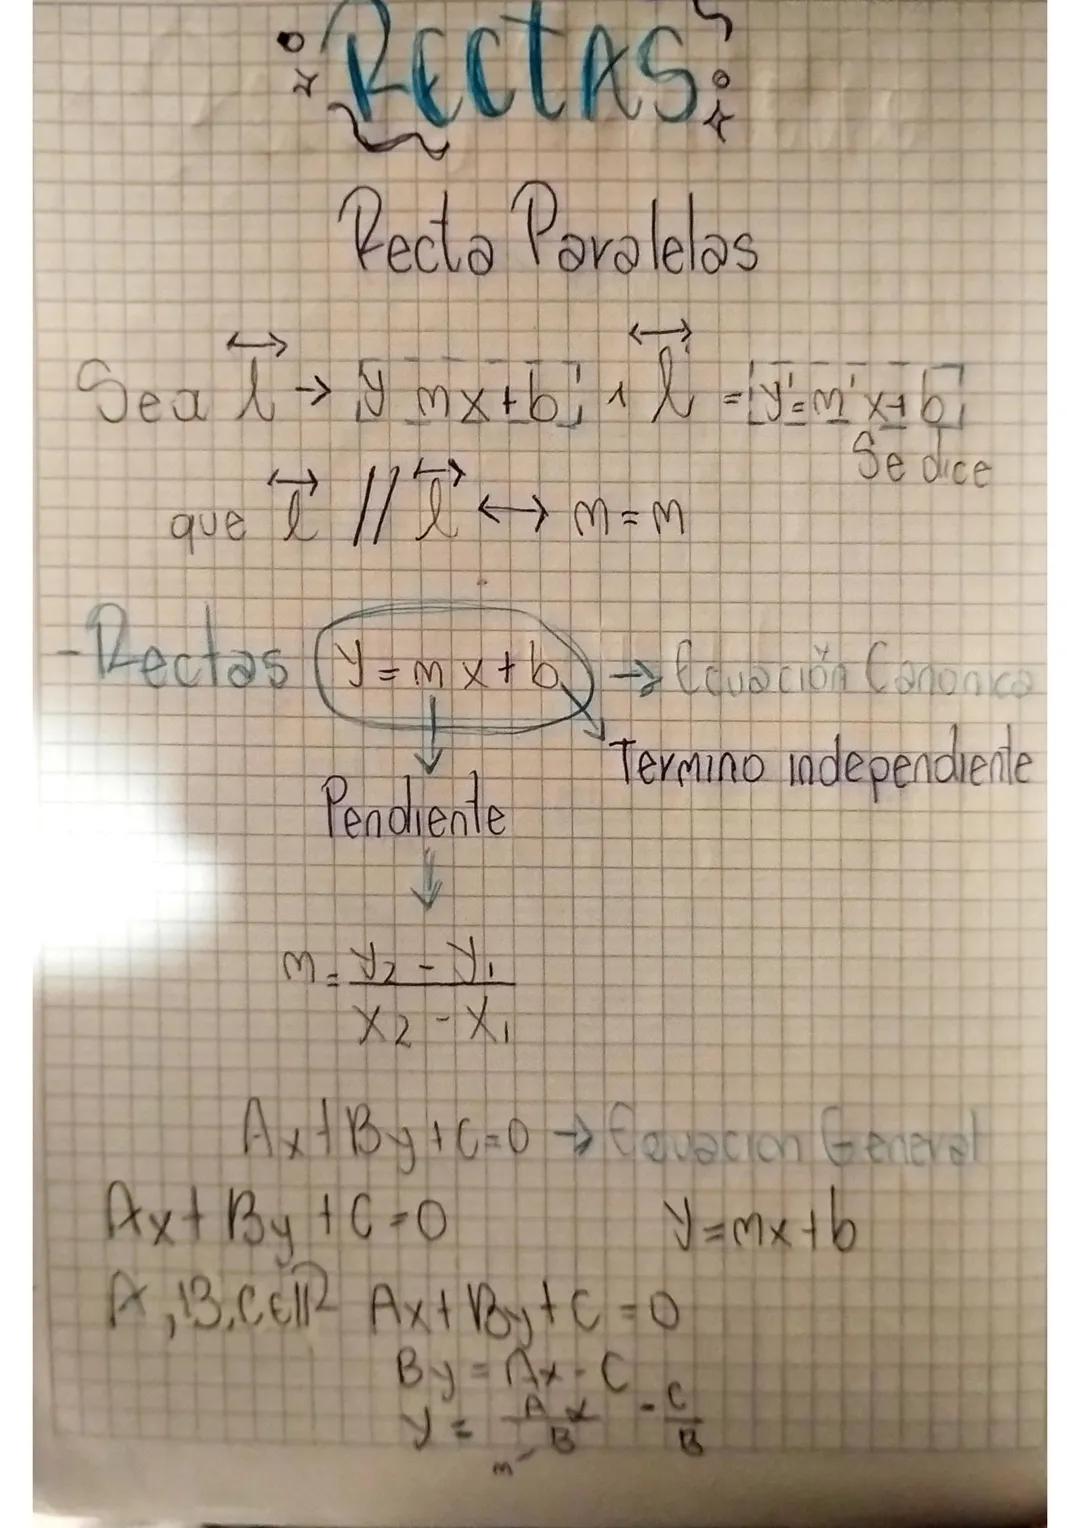 RECTAS
Recta Paralelas
Sea l → y mx+b ∧ l' = y'=m'x+b
Se dice
que l // l ↔ m=m
-Rectas y=mx+b → Ecuación Canonica
Termino independiente
Pendiente
m= y₂ - y₁
x₂ - x₁
Ax+By+C=0 → Ecuacion General
Ax+By+C=0 y=mx+b
A,B,C∈ℝ Ax+By+C=0
By=Ax-C
y= A x - C
B B
m